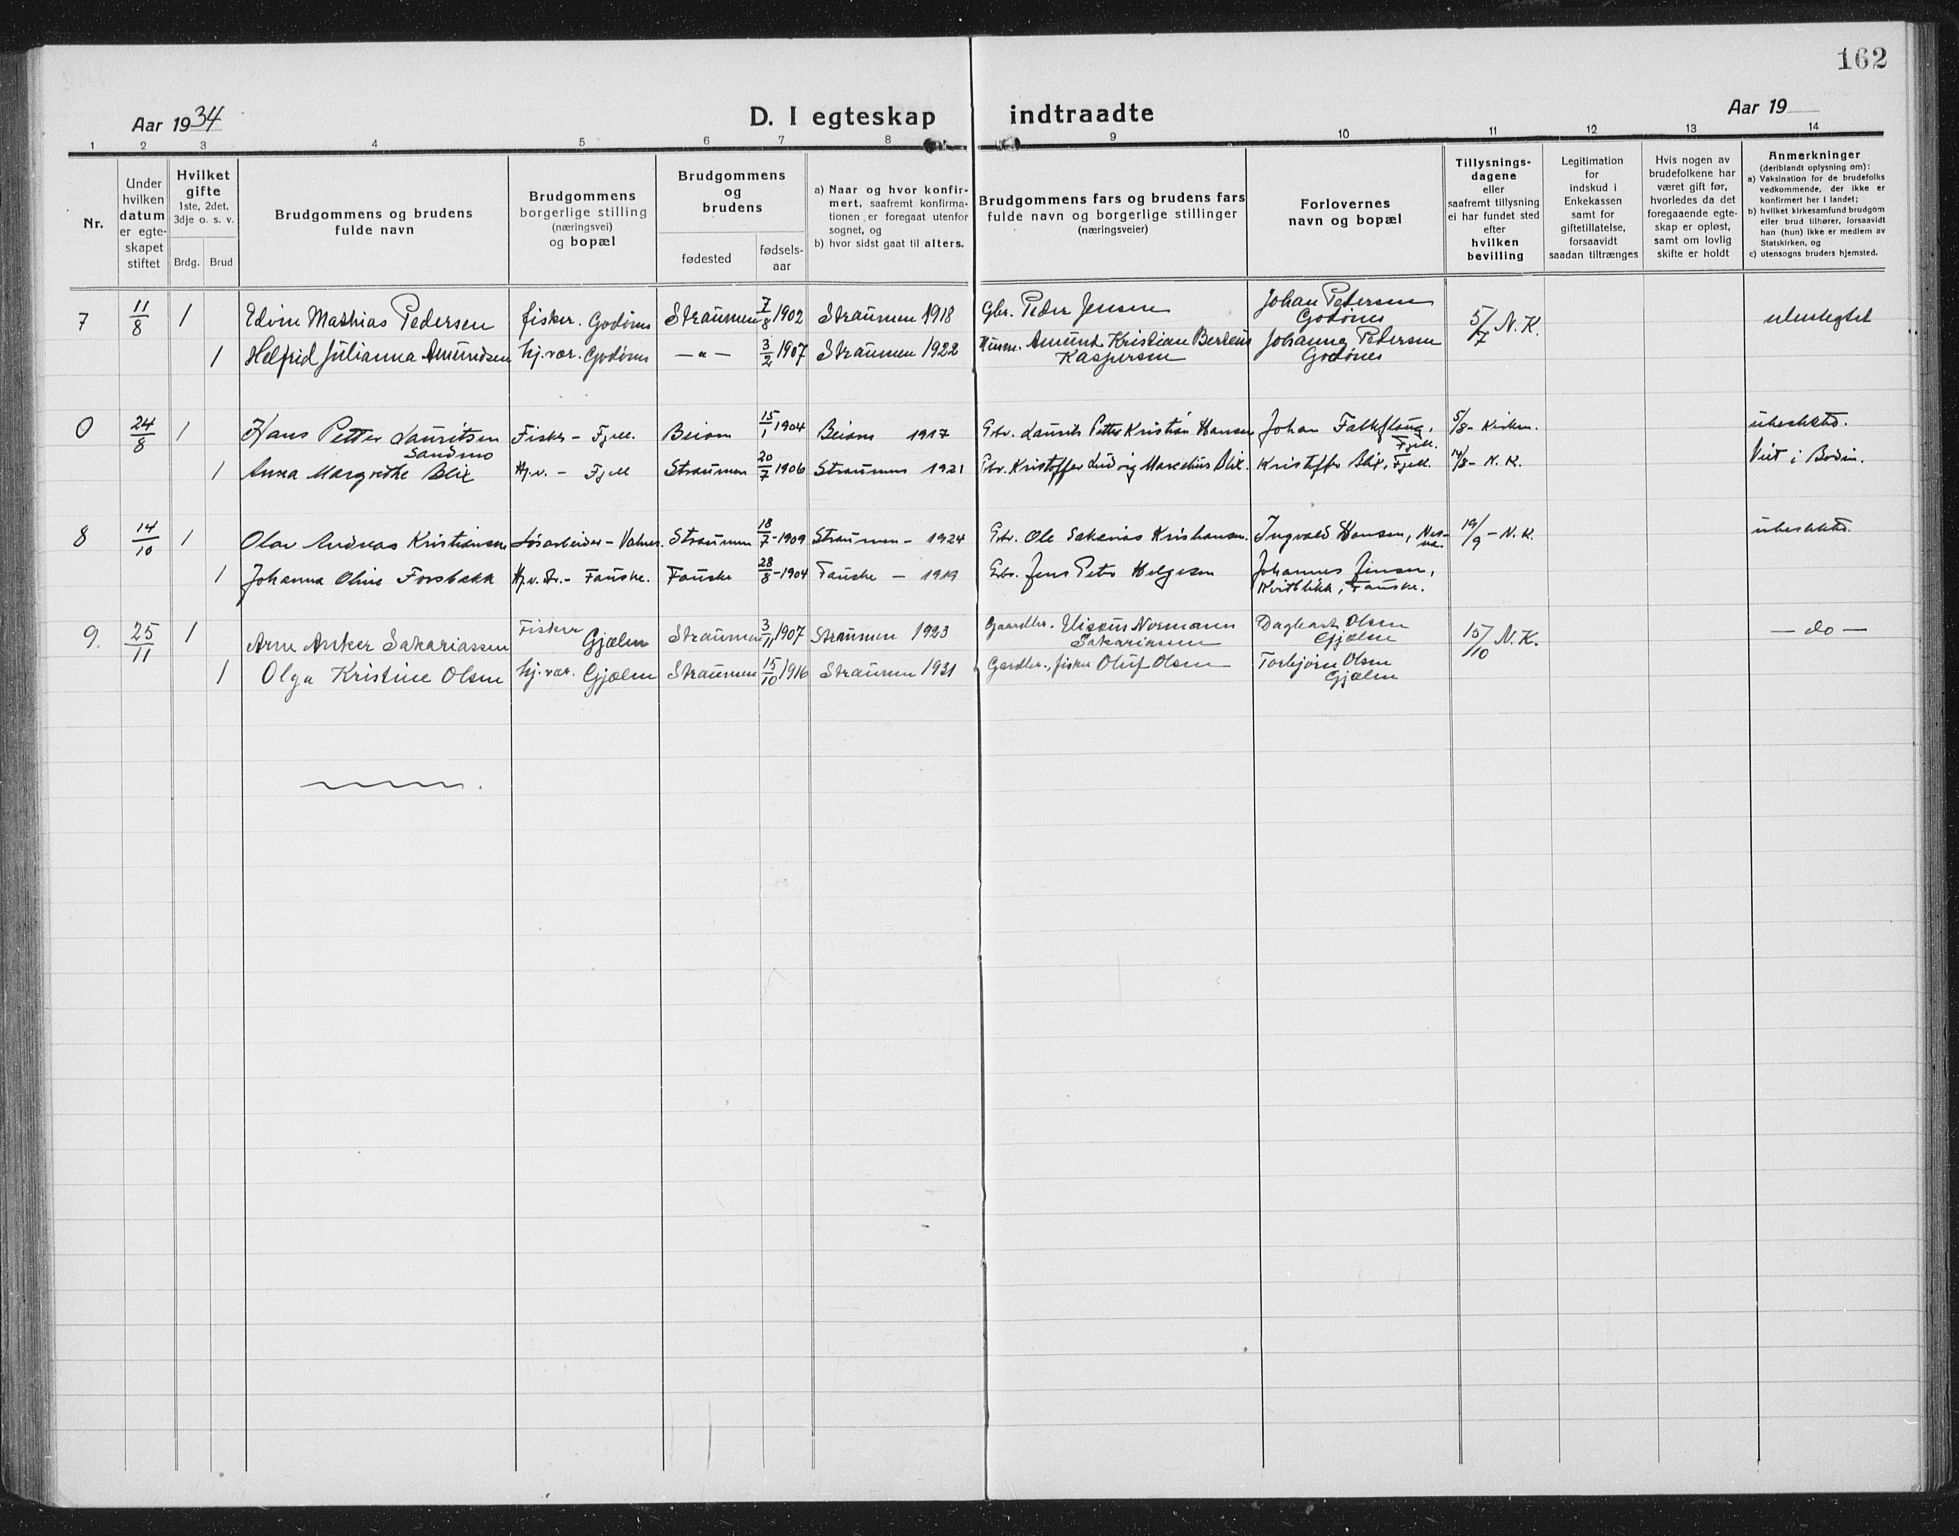 162
Aar 1934
D. I egteskap indtraadte
Aar 19
1 2 3 4 5 6 7 8 9 10 11 12 13 14
Nr.
Under
hvilken
datum
er egte-
skapet
stiftet
Hvilket
gifte
1ste, 2det,
3dje o. s. v.
Brdg. Brud
Brudgommens og brudens
fulde navn
Brudgommens
borgerlige stilling
(næringsvei)
og bopæl
Brudgommens
og
brudens
fødested
fødsels-
aar
a) Naar og hvor konfir-
mert, saafremt konfirma-
tionen er foregaat utenfor
sognet, og
b) hvor sidst gaat til alters.
Brudgommens fars og brudens fars
fulde navn og borgerlige stillinger
(næringsveier)
Forlovernes
navn og bopæl
Tillysnings-
dagene
eller
saafremt tillysning
ei har fundet sted
efter
hvilken
bevilling
Legitimation
for
indskud i
Enkekassen
samt for
giftetillatelse,
forsaavidt
saadan tiltrænges
Hvis nogen av
brudefolkene har
været gift før,
hvorledes da det
foregaaende egte-
skap er opløst,
samt om lovlig
skifte er holdt
Anmerkninger
(deriblandt oplysning om):
a) Vaksination for de brudefolks
vedkommende, der ikke er
konfirmert her i landet;
b) hvilket kirkesamfund brudgom
eller brud tilhører, forsaavidt
han (hun) ikke er medlem av
Statskirken, og
c) utensogns bruders hjemsted.
7 11/8 1 Edvin Mathias Pedersen fisker. Godønes Straumen 7/8 1902 Straumen 1918 Gbr. Peder Jensen Johan Pedersen
Godønes 5/7 N.K.
1 Helfrid Julianna Amundsen hj.vær. Godønes —"— 3/2 1907 Straumen 1922 Amund Kristian Berteus
Kaspersen Johanna Pedersen
Godønes
0 24/8 1 Hans Petter Lauritsen
Sandmo Fisker - Fjell. Beiarn 15/1 1904 Beiarn 1917 Gbr. Laurits Petter Kristian Hansen Johan Falkflaug,
Fjell. 5/8 - Kirken. ubeslektet.
1 Anna Margrethe Blix Hj.v. - Fjell Straumen 20/7 1906 Straumen 1921 Gbr. Kristoffer Ludvig Marcelius Blix. Kristoffer Blix, Fjell. 14/8 - N.K. Viet i Bodin.
8 14/10 1 Olav Andreas Kristiansen Løsarbeider - Straumen 18/7 - 1909 Straumen - 1924 Gbr. Ole Sakarias Kristiansen. Ingvald Hansen, 19/9 - N.K. ubeslektet.
1 Johanna Oline Forsbakk Fauske. Fauske 28/8 - 1904 Fauske - 1919 Gbr. Jens Peter Helgesen Johannes Jensen,
Kvitblikk, Fauske.
9. 25/11 1 Arne Anker Sakariassen Fisker Gjælen Straumen 3/11 1907 Straumen 1923 Gaardbr. Elisæus Normann
Sakariassen Olsen
Gjælen 15/10 N.K. — do —
1 Olga Kristine Olsen hj.vær. Gjælen Straumen 15/10 1916 Straumen 1931 Gardbr., fisker Oluf Olsen Torbjørn Olsen
Gjælen